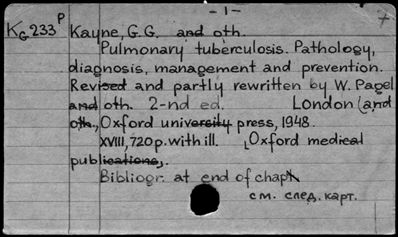 - 1 -
KG 233 P Kayne, G.G. and oth.
Pulmonary tuberculosis. Pathology,
diagnosis, management and prevention.
Revised and partly rewritten by W. Pagel
and oth. 2-nd ed. London (and
oth., Oxford university press, 1948.
XVIII, 720 p. with ill. (Oxford medical
publications).
Bibliogr. at end of chapt
см. след. карт.